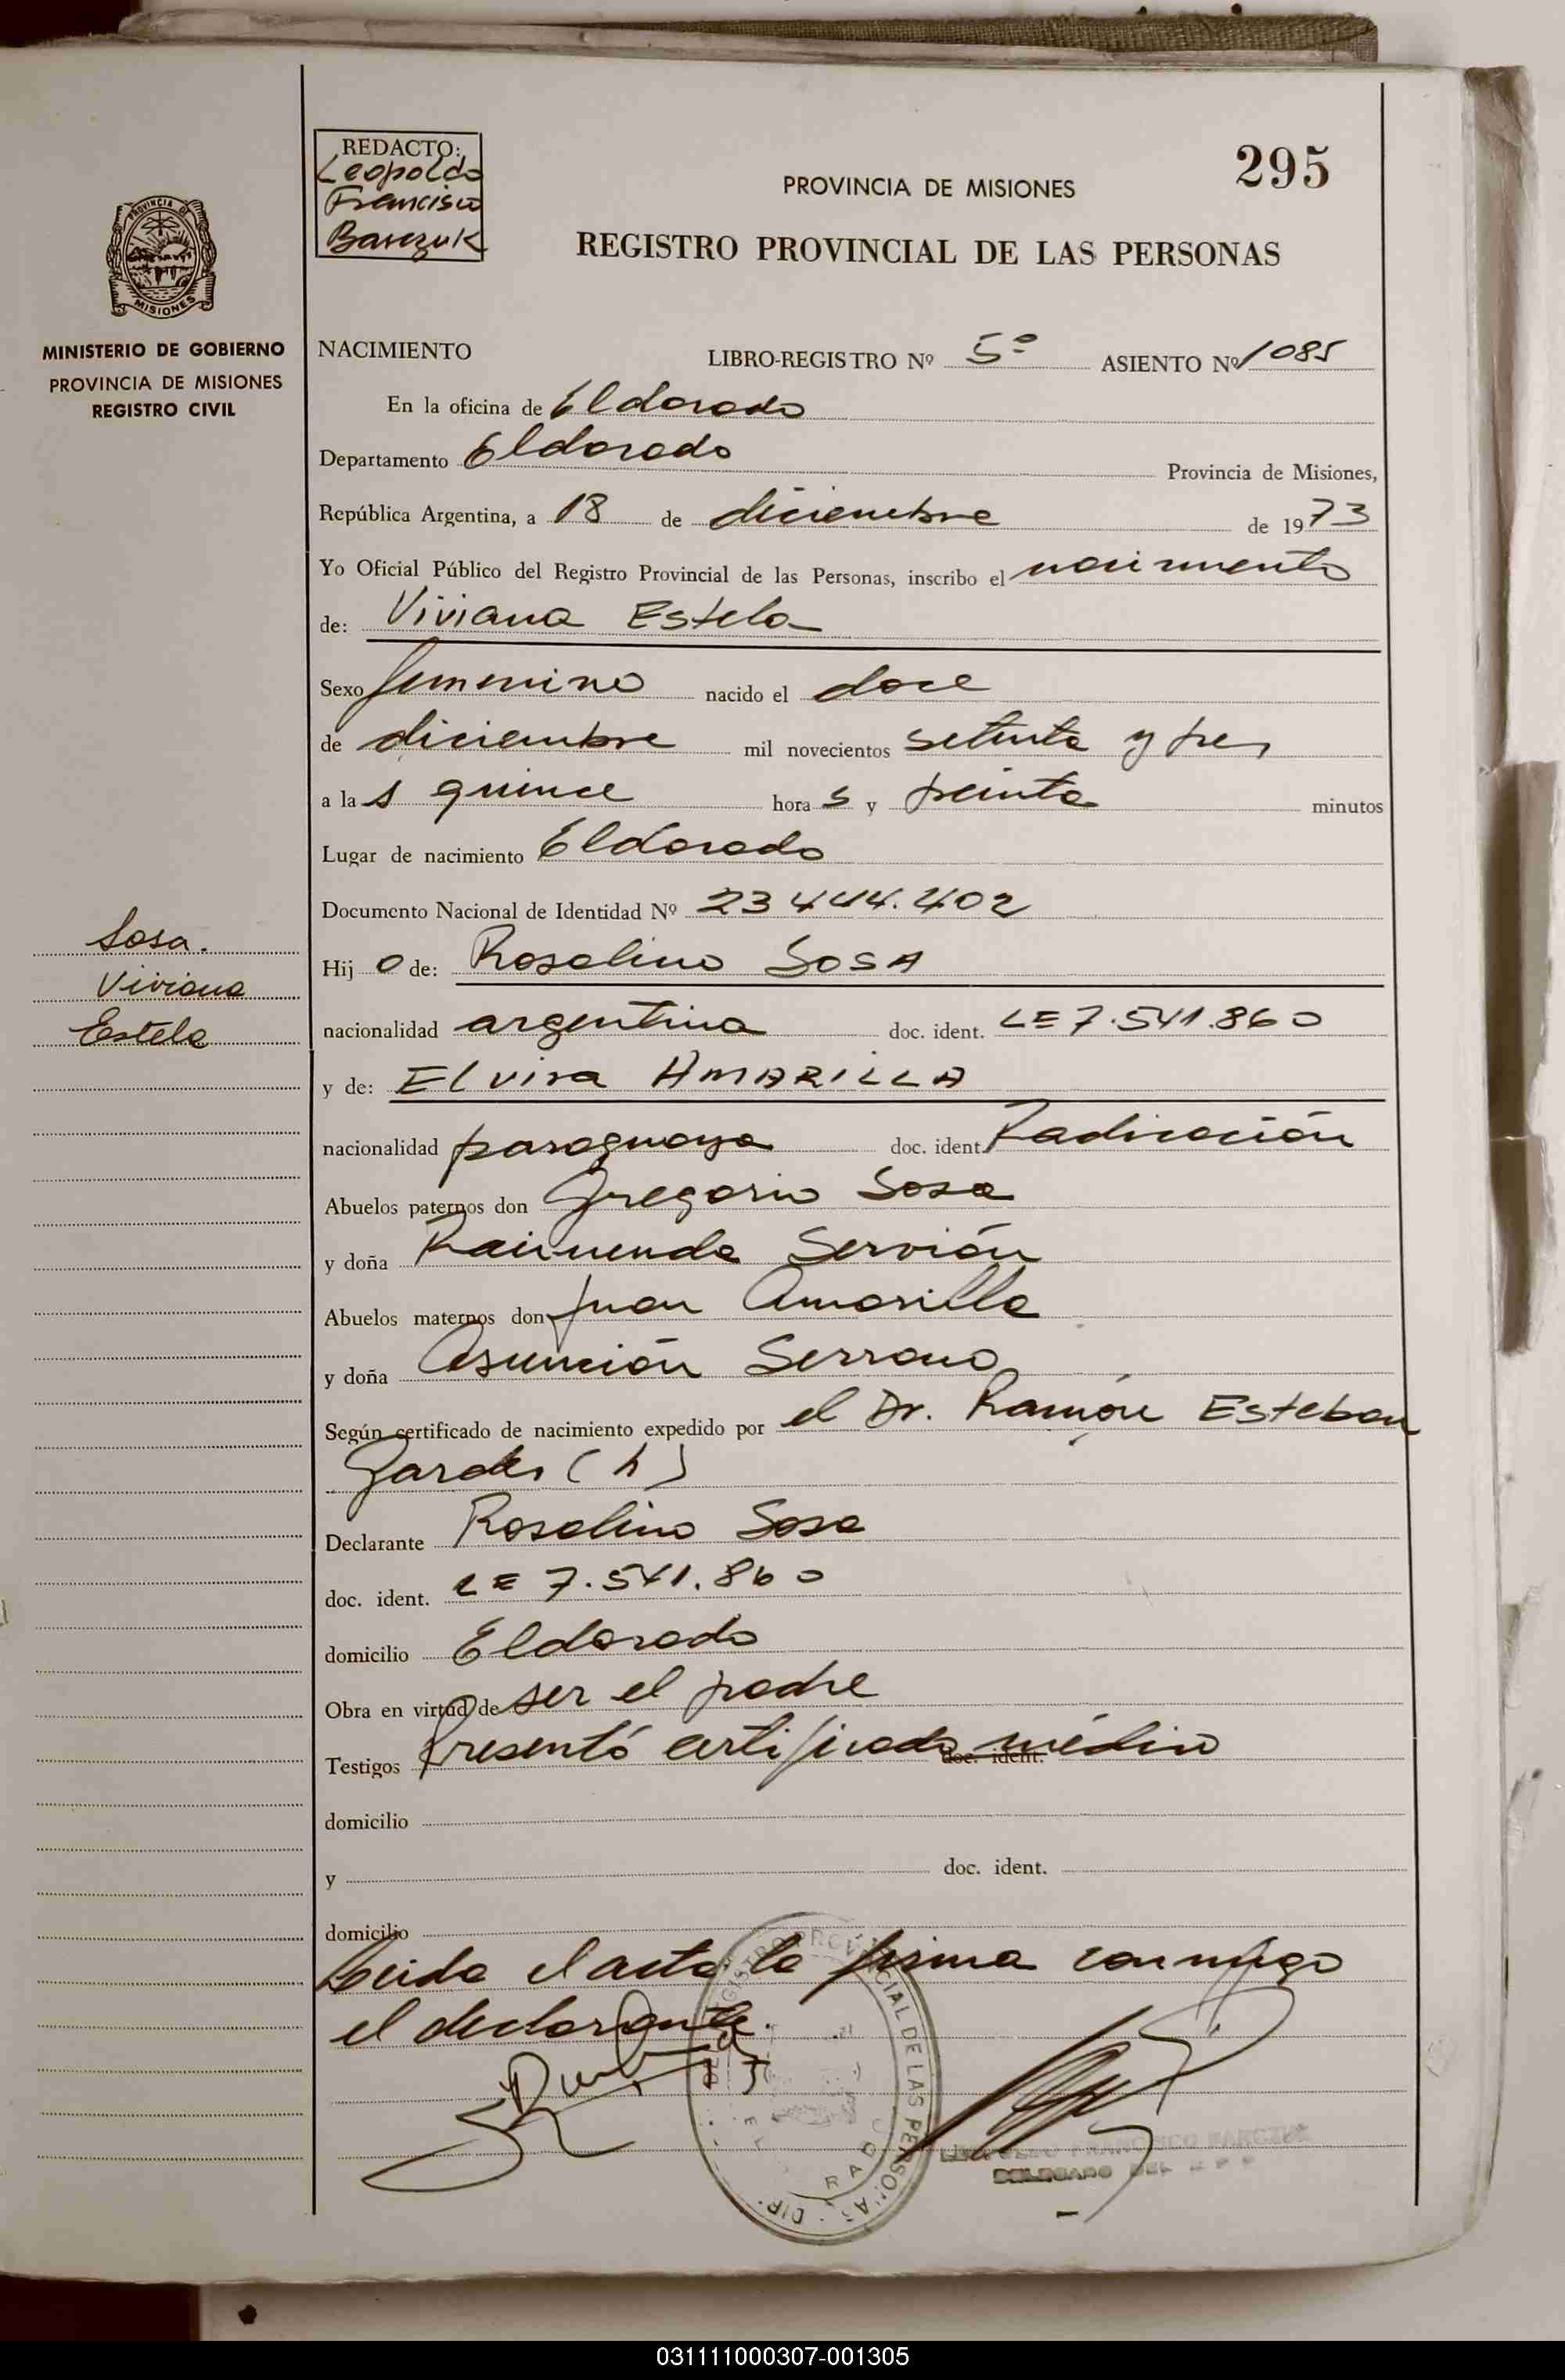 295
REDACTO:
Leopoldo
Francisco
Barczuk
PROVINCIA DE MISIONES
REGISTRO PROVINCIAL DE LAS PERSONAS
PROVINCIA DE
MISIONES
MINISTERIO DE GOBIERNO
PROVINCIA DE MISIONES
REGISTRO CIVIL
NACIMIENTO LIBRO-REGISTRO Nº 5º ASIENTO Nº 1085
En la oficina de Eldorado
Departamento Eldorado Provincia de Misiones,
República Argentina, a 18 de diciembre de 1973
Yo Oficial Público del Registro Provincial de las Personas, inscribo el nacimiento
de: Viviana Estela
Sexo femenino nacido el doce
de diciembre mil novecientos setenta y tres
a las quince horas y treinta minutos
Lugar de nacimiento Eldorado
Documento Nacional de Identidad Nº 23444.402
Sosa.
Viviana
Estela
Hijo de: Rosalino SOSA
nacionalidad argentina doc. ident. LE 7.541.860
y de: Elvira AMARILLA
nacionalidad paraguaya doc. ident. Radicación
Abuelos paternos don Gregorio Sosa
y doña Raimunda Servión
Abuelos maternos don Juan Amarilla
y doña Asunción Serrano
Según certificado de nacimiento expedido por el Dr. Ramón Esteban
Gardes (h)
Declarante Rosalino Sosa
doc. ident. LE 7.541.860
domicilio Eldorado
Obra en virtud de ser el padre
Testigos Presentó certificado doc. ident. médico
domicilio
y doc. ident.
domicilio
Leida el acta la firma conmigo
el declarante.
REGISTRO PROVINCIAL DE LAS PERSONAS
LEOPOLDO FRANCISCO BARCZUK
DELEGADO DEL R P P
031111000307-001305